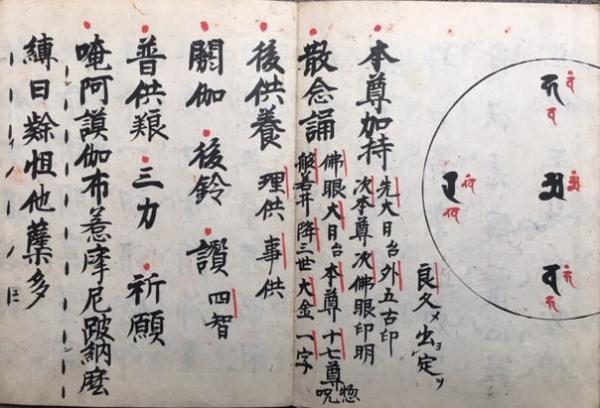 良久メ出定ツ
本尊加持
先大日台外五古印
次本尊次佛眼印明
散念誦
佛眼大日台本尊十七尊惣呪
般若并降三世大金一字
後供養 理供 事供
閼伽・後鈴・讃 四智
普供養・三力・祈願
唵阿謨伽布惹摩尼跛納麼
縛日怛他蘗多